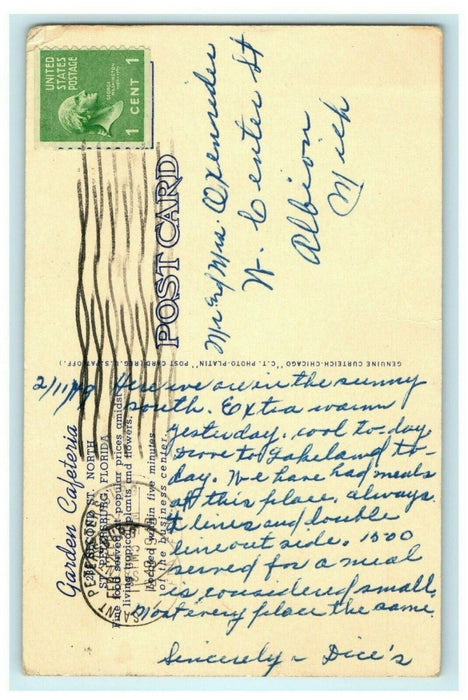 UNITED
STATES
POSTAGE
GEORGE
WASHINGTON
1 CENT 1
POST CARD
Mr and Mrs. Oxensider
N. Center St
Albion
Mich
GENUINE CURTEICH-CHICAGO "C.T. PHOTO-PLATIN" POST CARD (REG. U.S. PAT. OFF.)
Garden Cafeteria
232 SECOND ST. NORTH
ST. PETERSBURG, FLORIDA
Fine food served at popular prices amidst
living tropical plants and flowers.
Located within five minutes
of the business center.
2/11/49 Here we are in the sunny
south. Extra warm
yesterday. cool to-day.
Drove to Lakeland to-
day. We have had meals
at this place. always
2 lines and double
line out side. 1500
served for a meal
is considered small.
Most every place the same.
Sincerely - Dice's